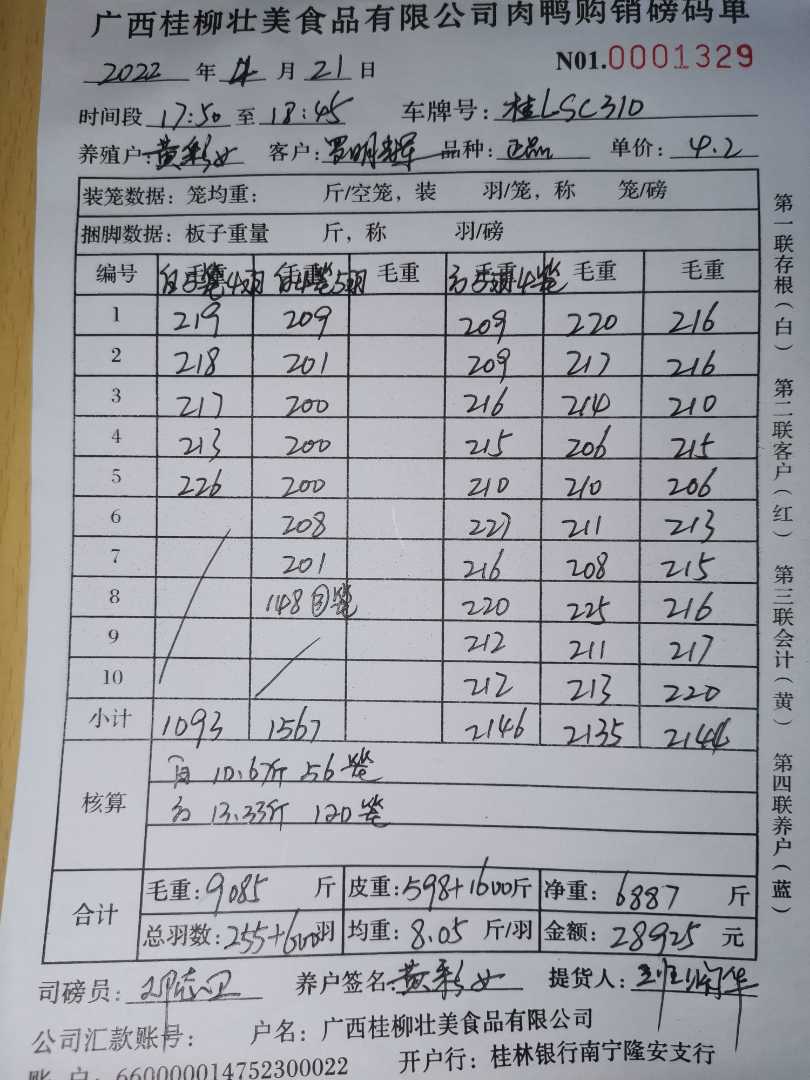 广西桂柳壮美食品有限公司肉鸭购销磅码单
2022 年 4 月 21 日 N01.0001329
时间段 17:50 至 18:45 车牌号: 桂LSC310
养殖户: 黄彩女 客户: 罗明军 品种: 正品 单价: 4.2
装笼数据: 笼均重: 斤/空笼, 装 羽/笼, 称 笼/磅
捆脚数据: 板子重量 斤, 称 羽/磅
编号 毛重 毛重 毛重 毛重 毛重 毛重
1 219 209 209 220 216
2 218 201 209 217 216
3 217 200 216 214 210
4 213 200 215 206 215
5 226 200 210 210 206
6 208 227 211 213
7 201 216 208 215
8 148 220 225 216
9 212 211 217
10 212 213 220
小计 1093 1567 2146 2135 2144
核算 自 10.67斤 56笼
13.33斤 120笼
合计 毛重: 9085 斤 皮重: 598+1600斤 净重: 6887 斤
总羽数: 255+600羽 均重: 8.05 斤/羽 金额: 28925 元
司磅员: 养户签名 黄彩女 提货人:
公司汇款账号: 户名: 广西桂柳壮美食品有限公司
账 户: 660000014752300022 开户行: 桂林银行南宁隆安支行
第一联存根(白) 第二联客户(红) 第三联会计(黄) 第四联养户(蓝)